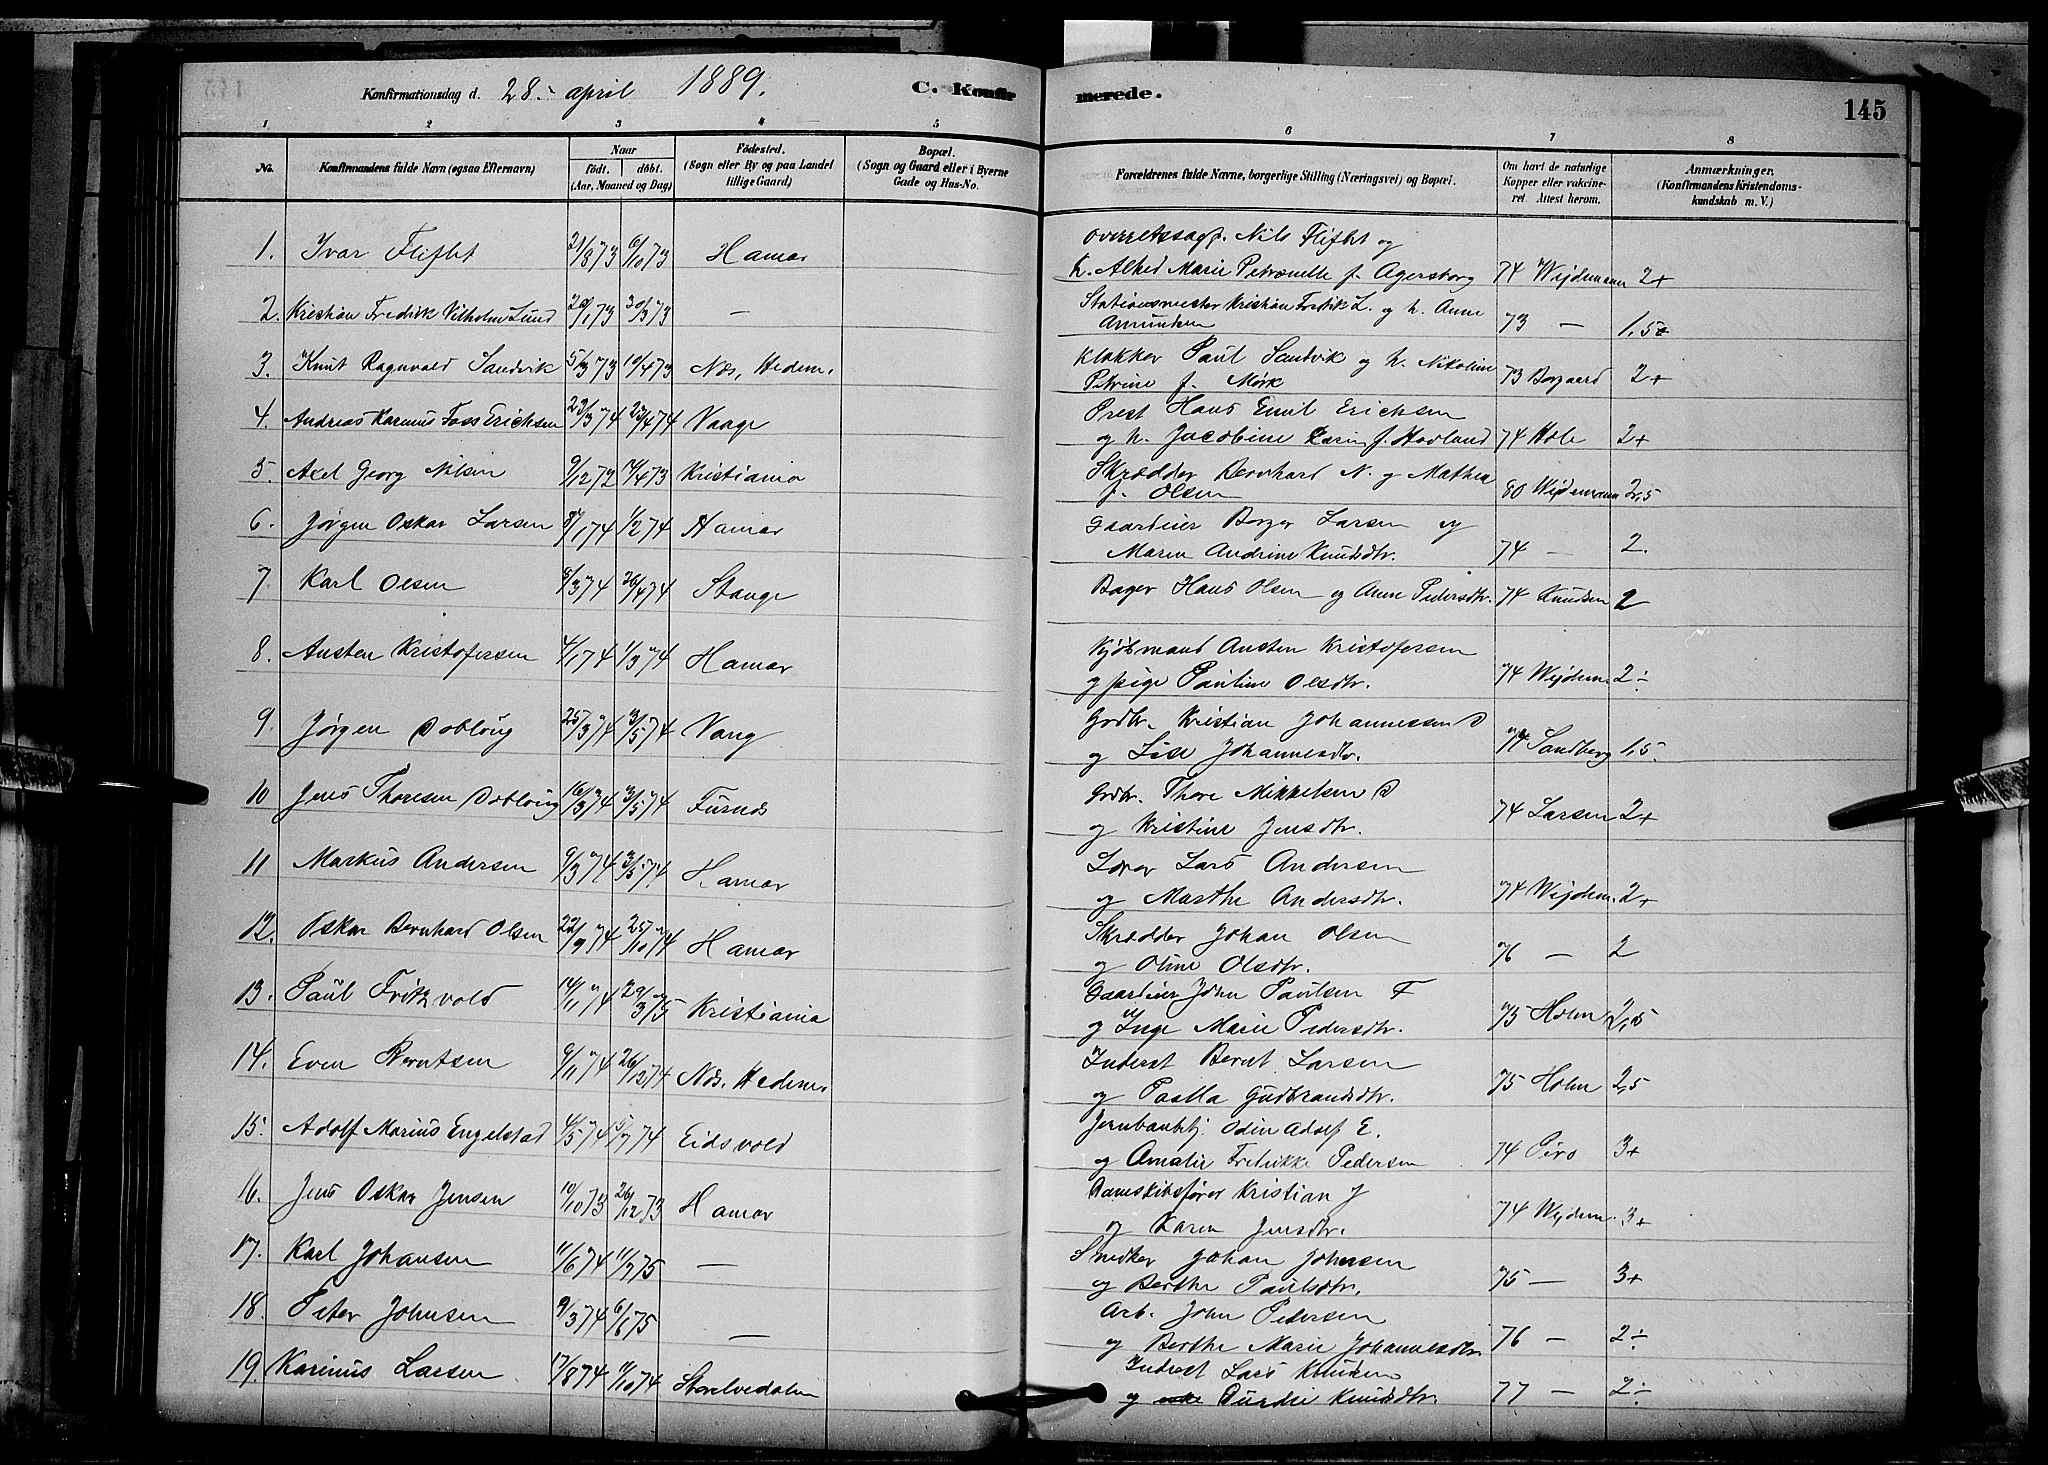 Konfirmationsdag d. 28. april 1889. C. Konfirmerede. 145
1. 2 3 4 5 6 7 8
No. Konfirmandens fulde Navn (ogsaa Efternavn) Naar født. døbt. (Aar, Maaned og Dag) Fødested. (Sogn eller By og paa Landet tillige Gaard) Bopæl. (Sogn og Gaard eller i Byerne Gade og Hus-No. Forældrenes fulde Navne, borgerlige Stilling (Næringsvei) og Bopæl. Om havt de naturlige Kopper eller vakcineret. Attest herom. Anmærkninger. (Konfirmandens Kristendomskundskab m. V.)
1. Ivar Fliflet 21/8 73 6/10 73 Hamar Overretssagf. Nils Fliflet og
h. Alhed Marie Petronelle f. Agersborg 74 Wejdemann 2+
2. Kristian Fredrik Vilhelm Lund 20/1 73 30/3 73 — Stationsmester Kristian Fredrik L. og h. Anne
Amundsen 73 — 1,5+
3. Knut Ragnvald Sandvik 5/3 73 10/4 73 Næs, Hedem. Klokker Paul Sandvik og h. Nikoline
Petrine f. Mörk 73 Borgaard 2+
4. Andreas Rasmus Foss Erichsen 23/3 74 23/4 74 Vaage Prest Hans Emil Erichsen
og h. Jacobine Karin f. Hovland 74 Hole 2+
5. Axel Georg Nilsen 9/12 72 14/4 73 Kristiania Skrædder Bernhard N. og Mathea
f. Olsen 80 Wejdemann 2,5
6. Jørgen Oskar Larsen 8/1 74 1/2 74 Hamar Gaardeier Borger Larsen og
Maren Andrine Knudsdtr. 74 — 2.
7. Karl Olsen 8/3 74 26/4 74 Stange Bager Hans Olsen og Anne Pedersdtr. 74 Knudsen 2
8. Austen Kristofersen 4/1 74 1/3 74 Hamar Kjøbmand Austen Kristofersen
og pige Pauline Olsdtr. 74 Wejdem. 2÷
9. Jørgen Dobloug 25/3 74 3/5 74 Vang Grdbr. Kristian Johannessen D
og Lise Johannesdtr. 74 Sandberg 1,5
10 Jens Thoresen Dobloug 16/3 74 3/5 74 Furnæs Grdbr. Thore Mikkelsen D
og Kristine Jensdtr. 74 Larsen 2+
11 Markus Andersen 9/3 74 3/5 74 Hamar Lars Andersen
og Marthe Andersdtr. 74 Wejdem. 2+
12. Oskar Bernhard Olsen 22/9 74 25/10 74 Hamar Skrædder Johan Olsen
og Oline Olsdtr. 76 — 2
13. Paul Fritzvold 14/11 74 29/3 75 Kristiania Gaardeier John Paulsen F
og Inge Marie Pedersdtr. 75 Holm 2,5
14. Even Berntsen 9/11 74 26/12 74 Næs. Hedem. Inderst Bernt Larsen
og Gudbrandsdtr. 75 Holm 2,5
15. Adolf Marius Engelstad 4/5 74 5/7 74 Eidsvold Jernbanbtj. Odin Adolf E.
og Amalie Fredrikke Pedersen 74 3+
16. Jens Oskar Jensen 10/10 73 26/12 73 Hamar Damskibsfører Kristian J
og Karen Jensdtr. 74 Wejdem. 3+
17. Karl Johansen 11/6 74 11/7 75 — Snedker Johan Johansen
og Berthe Paulsdtr. 75 — 3+
18. Peter Johnsen 9/3 74 6/1 75 — Arb. John Pedersen
og Berthe Marie Johannesdtr. 76 — 2÷
19. Karinus Larsen 17/8 74 11/10 74 Storelvedalen Inderst Lars Knudsen
og Knudsdtr. 77 — 2÷